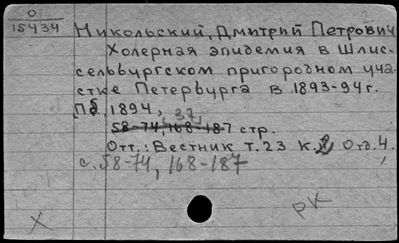 0
15434
Никольский, Дмитрий Петрович
Холерная эпидемия в Шлис-
сельбургском пригородном уча-
стке Петербурга в 1893-94 г.
Пб, 1894,
37
58-74, 168-187 стр.
Отт.: Вестник т. 23 к. Отд. 4.
с. 58-74, 168-187
X
РК